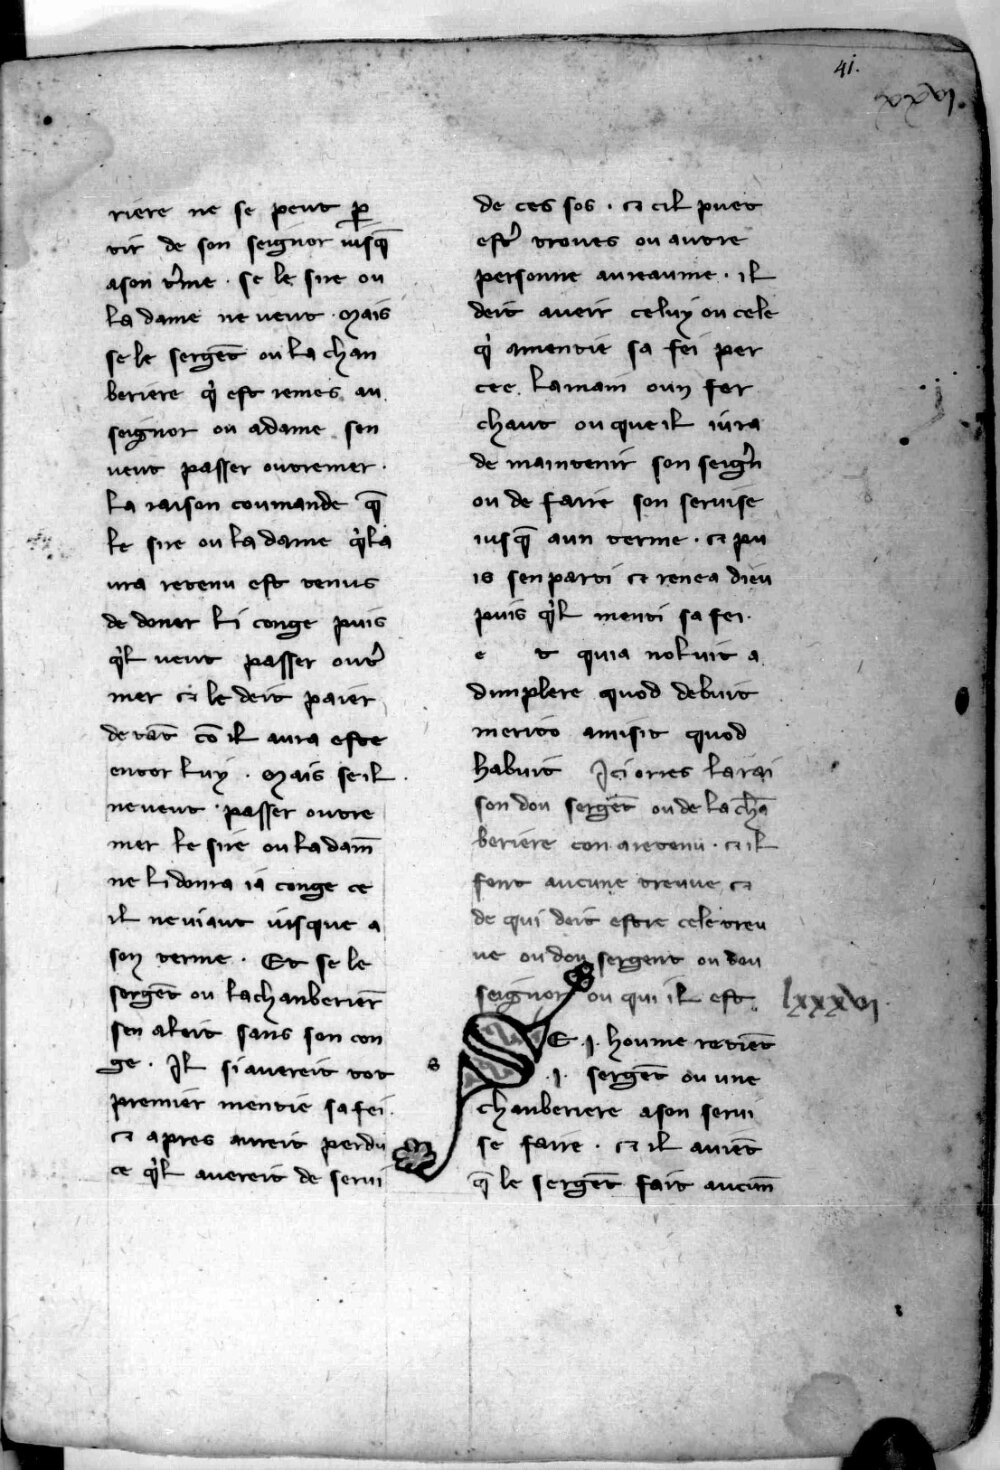 41.
xxxvi.
riere ne se peut ꝑ
tir de son seignor iusq̄
ason t̾me . se le sire ou
la dame ne veut . Mais
se le serget̄ ou la chan
beriere q̾ est remes au
seignor ou adame sen
veut passer outremer .
la raison coumande q̄
le sire ou la dame q̾la
ura retenu est tenus
de doner li conge puis
q̾l veut passer out̾
mer ⁊ le deit paier
de tāt cō il aura este
entor luy . Mais se il
ne veut passer outre
mer le sire ou la dam̄
ne li doura ia conge ce
il ne viaut iusque a
son terme . Et se le
serget̄ ou lachanberier̄
sen aleit sans son con
ge . Il si avereit tot
premier mentie sa fei .
⁊ apres aureit perdu
ce q̾l avereit de servi
de ces sos . ⁊ cil puet
est̾ troves ou autre
personne au reaume . il
deit aveir celuy ou cele
q̾ amentie sa fei per
cee la main oun fer
chaut ou que il iura
de maintenir son seign̾
ou de faire son servise
iusq̄ aun terme . ⁊ pu
is sen parti ⁊ renea dieu
puis q̾l menti sa fei .
e t quia noluit a
dimplere quod debuit
merito amisit quod
habuit Ici ores la rai
son dou serget̄ ou de la chā
beriere con a retenu . ⁊ il
font aucune treuve ⁊
de qui deit estre cele treu
ve ou dou sergent ou dou
seignor ou qui il est . lxxxvi .
s
SE .j. houme retiēt
.j. serget̄ ou une
chanberiere a son servi
se faire . ⁊ il aviēt
q̄ le serget̄ fait aucun̄